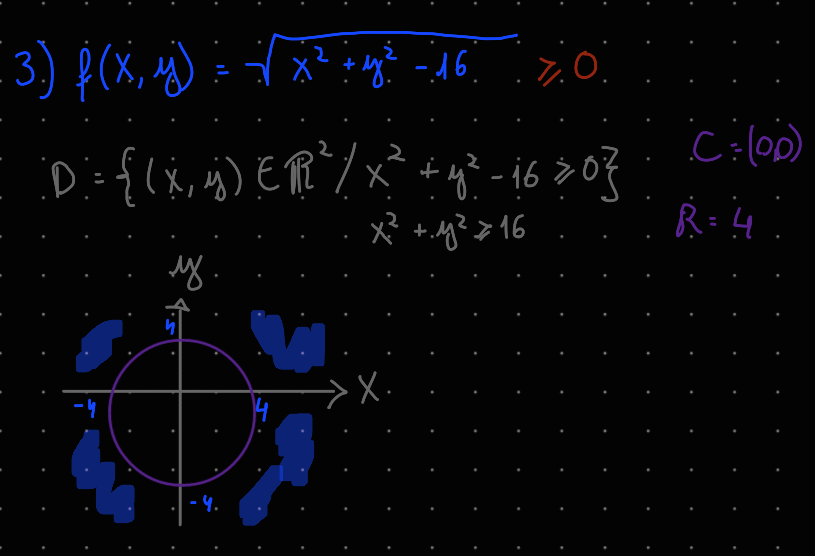 3) f(x,y) = √x² + y² - 16 ≥ 0
D = {(x,y) ∈ ℝ² / x² + y² - 16 ≥ 0}
x² + y² ≥ 16
C = (00)
R = 4
y
4
x
-4
4
-4